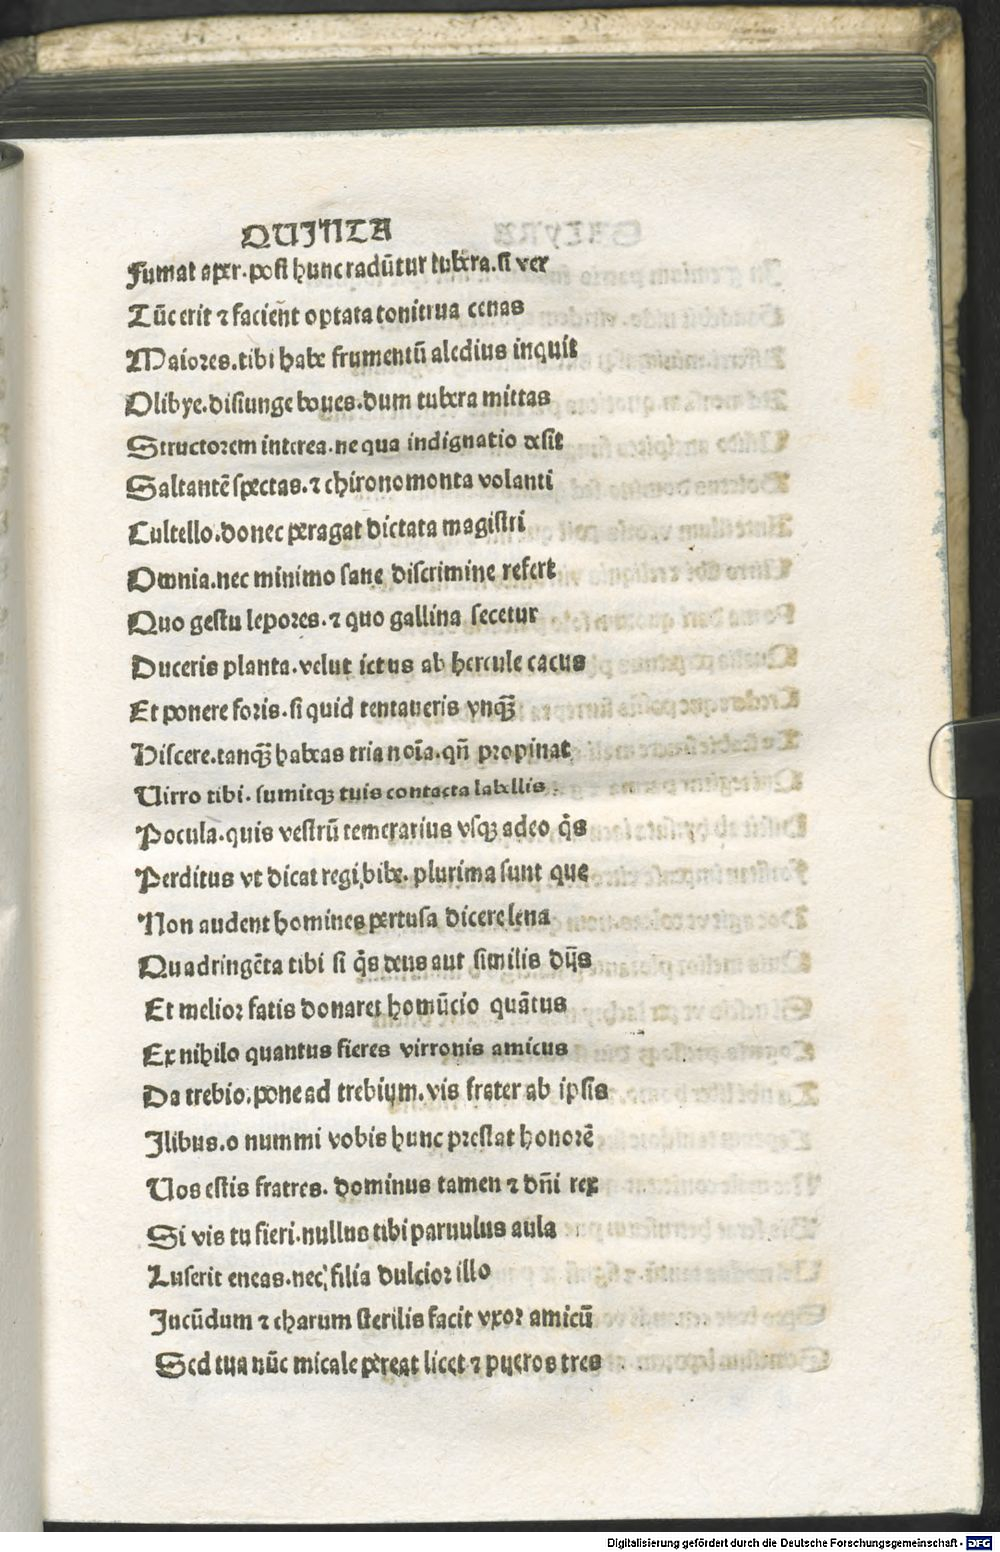 QUINTA
Fumat aper. post hunc radūtur tubera. si ver
Tūc erit ⁊ facient optata tonitrua cenas
Maiores. tibi habe frumentū aledius inquit
Olibye. disiunge boues. dum tubera mittas
Structorem interea. ne qua indignatio desit
Saltantē spectas. ⁊ chironomonta volanti
Cultello. donec peragat dictata magistri
Omnia. nec minimo sane discrimine refert
Quo gestu lepores. ⁊ quo gallina secetur
Duceris planta. velut ictus ab hercule cacus
Et ponere foris. si quid tentaueris vnqꝫ̄
Hiscere. tanqꝫ̄ habeas tria noīa. qn̄ propinat
Uirro tibi. sumitqꝫ tuis contacta labellis.
Pocula. quis vestrū temerarius vsqꝫ adeo q̄s
Perditus vt dicat regi, bibe. plurima sunt que
Non audent homines pertusa dicere lena
Quadringēta tibi si q̄s deus aut similis dijs
Et melior fatis donaret homūcio quātus
Ex nihilo quantus fieres virronis amicus
Da trebio. pone ad trebium. vis frater ab ipsis
Ilibus. o nummi vobis hunc prestat honorē
Uos estis fratres. dominus tamen ⁊ dn̄i rex
Si vis tu fieri. nullus tibi paruulus aula
Luserit eneas. nec, filia dulcior illo
Jucūdum ⁊ charum sterilis facit vxor amicū
Sed tua nūc micale pereat licet ⁊ pueros tres
Digitalisierung gefördert durch die Deutsche Forschungsgemeinschaft - DFG